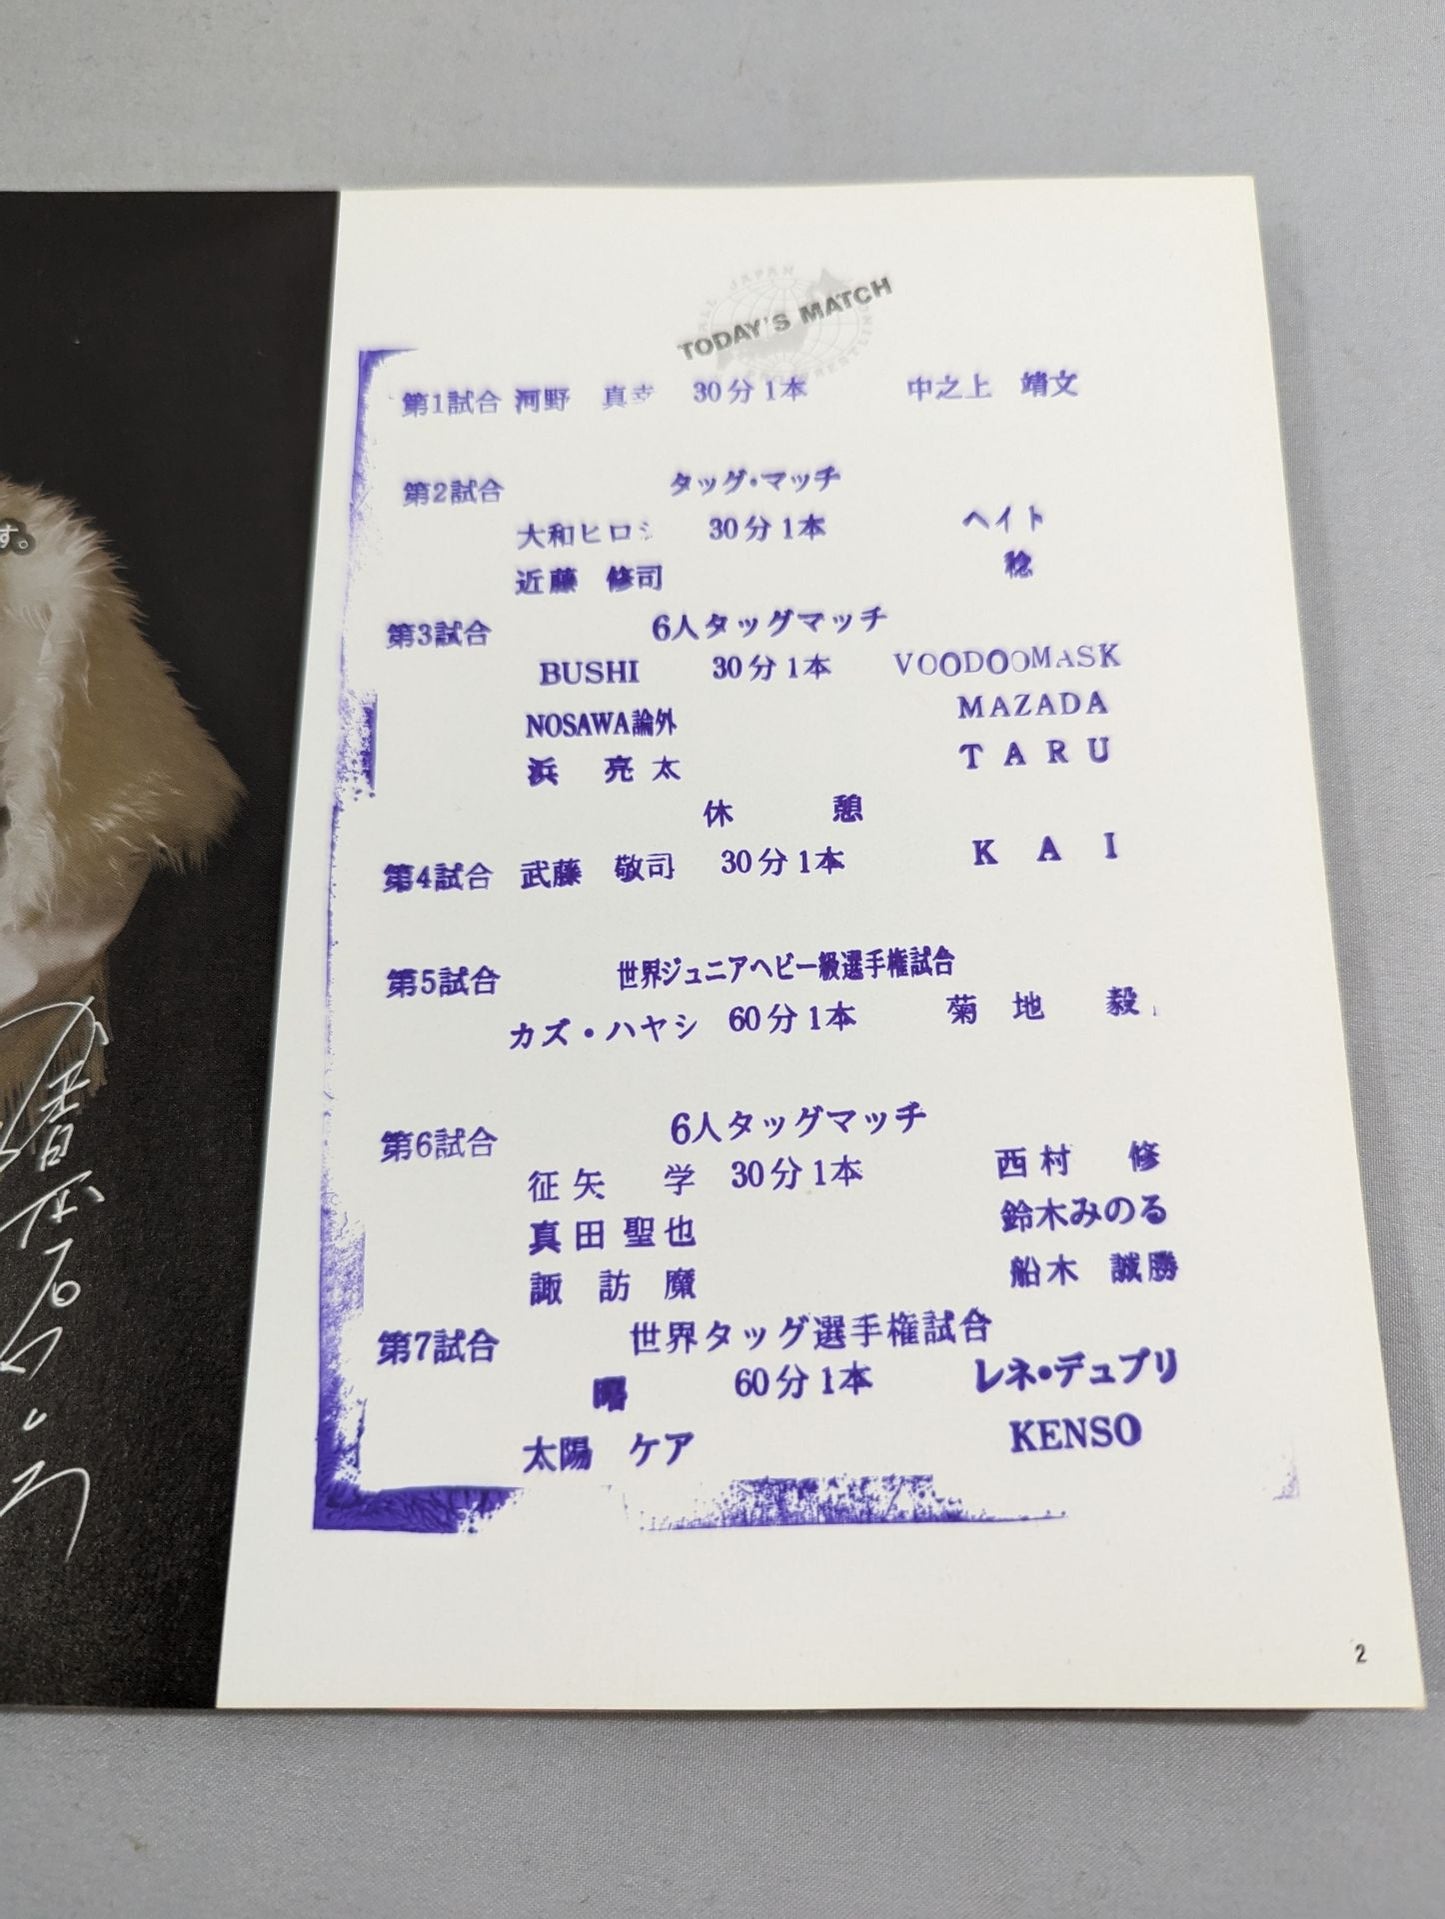 す。
ALL JAPAN PRO WRESTLING
TODAY'S MATCH
第1試合 河野 真幸 30分1本 中之上 靖文
第2試合 タッグ・マッチ
大和ヒロシ 30分1本 ヘイト
近藤 修司 稔
第3試合 6人タッグマッチ
BUSHI 30分1本 VOODOOMASK
NOSAWA論外 MAZADA
浜 亮太 TARU
休 憩
第4試合 武藤 敬司 30分1本 KAI
第5試合 世界ジュニアヘビー級選手権試合
カズ・ハヤシ 60分1本 菊地 毅
第6試合 6人タッグマッチ
征矢 学 30分1本 西村 修
真田聖也 鈴木みのる
諏訪魔 船木 誠勝
第7試合 世界タッグ選手権試合
曙 60分1本 レネ・デュプリ
太陽 ケア KENSO
2